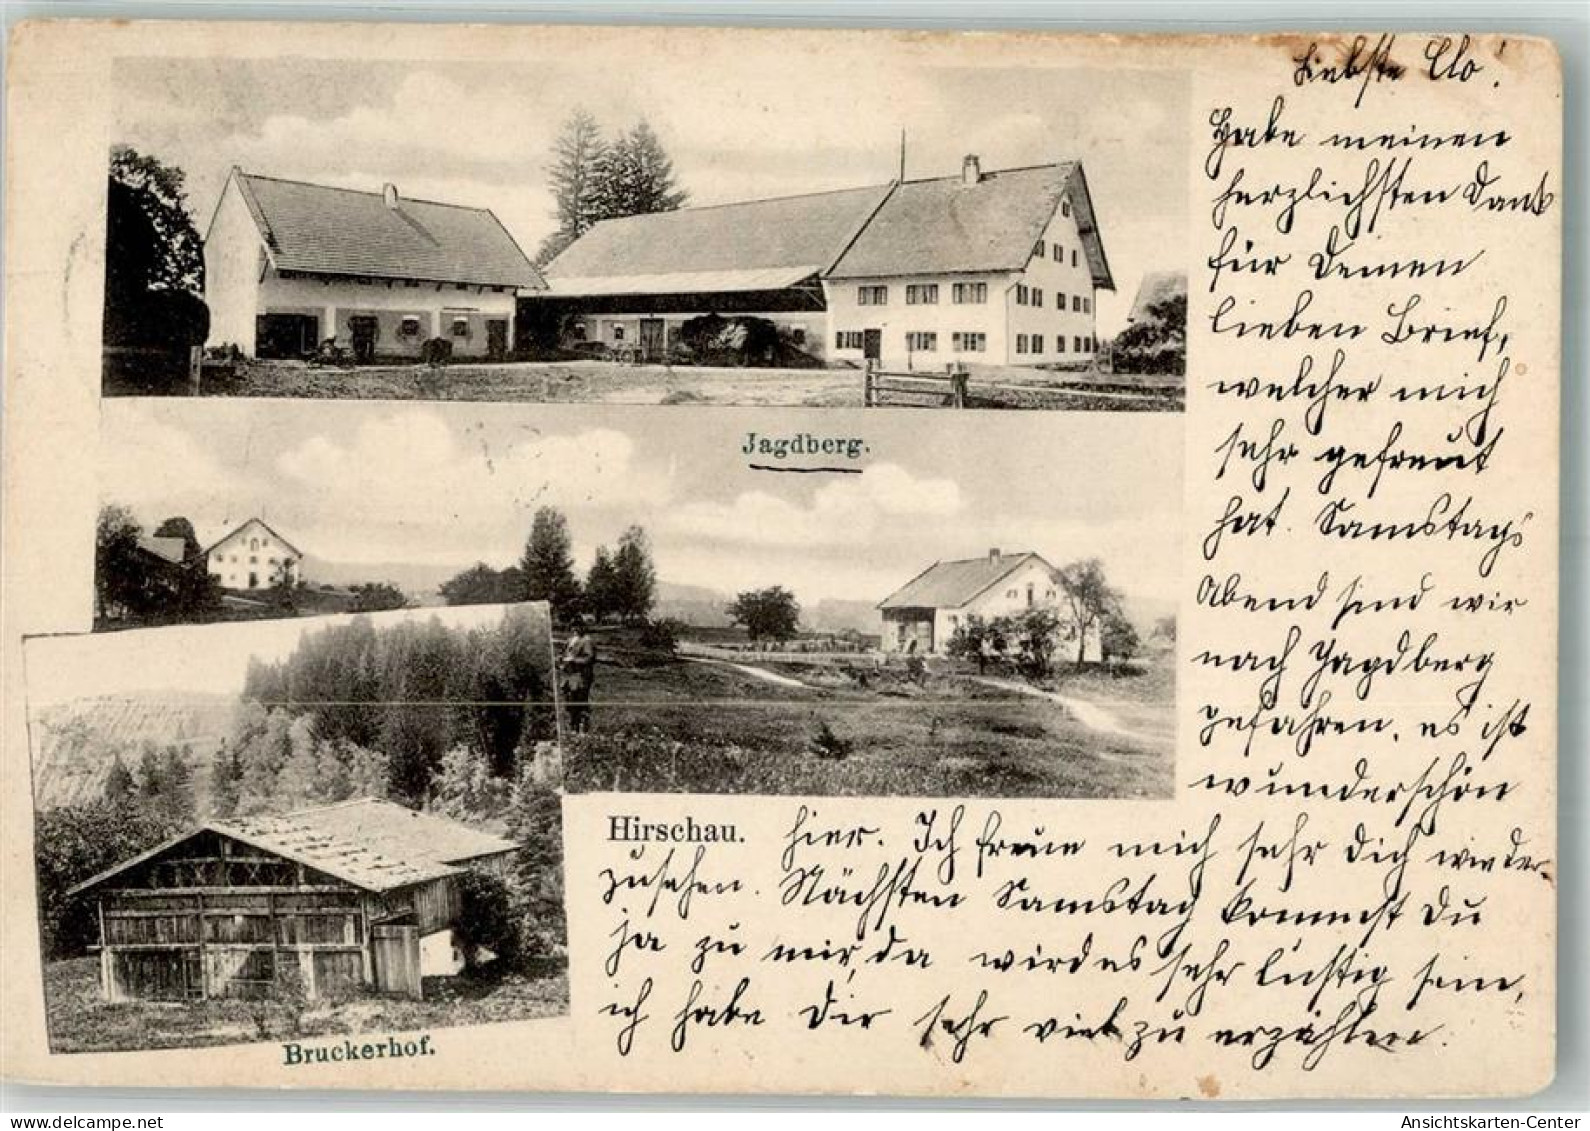 Liebste Clo!
Habe meinen
herzlichsten Dank
für Deinen
lieben Brief,
welcher mich
sehr gefreut
hat. Samstags
Abend sind wir
nach Jagdberg
gefahren, es ist
wunderschön
Jagdberg.
Hirschau. hier. Ich freue mich sehr Dich wieder-
zusehen. Nächsten Samstag kommst Du
ja zu mir, da wird es sehr lustig sein,
ich habe Dir sehr viel zu erzählen.
Bruckerhof.
delcampe.net
Ansichtskarten-Center